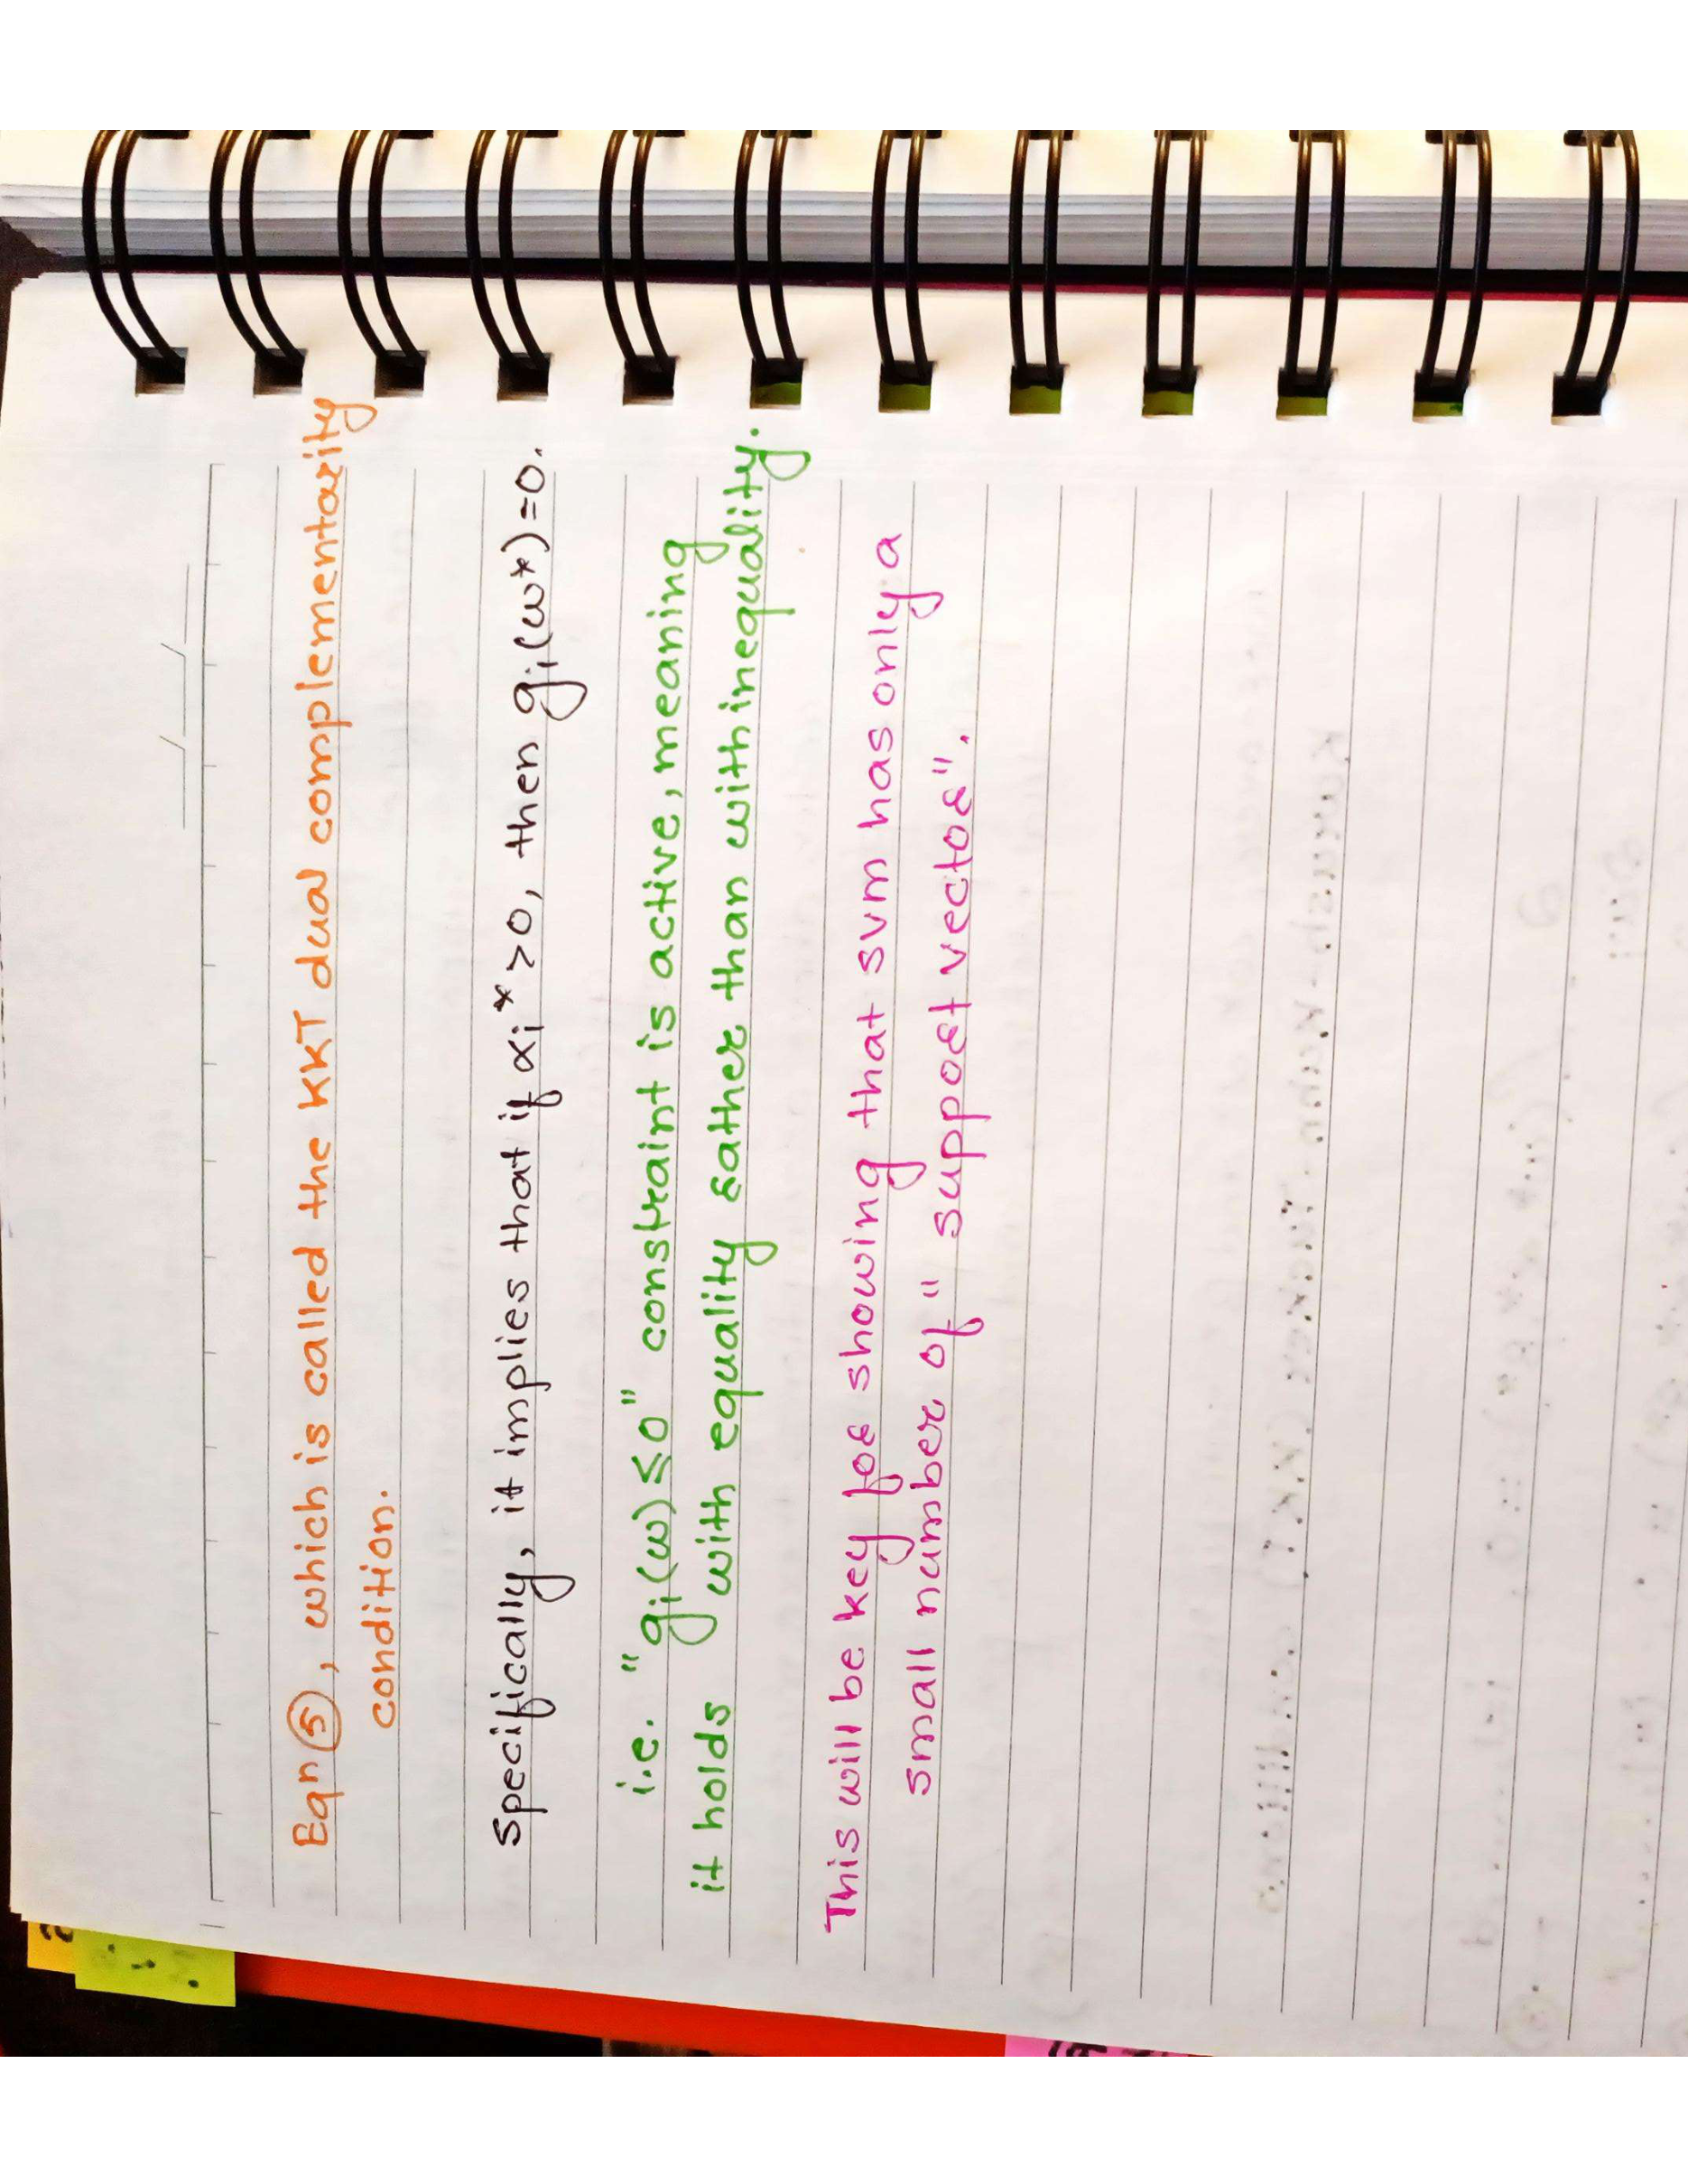 Eqn ⑤, which is called the KKT dual complementarity
condition.
Specifically, it implies that if αi* >0, then gi(w*)=0.
i.e. "gi(w)≤0" constraint is active, meaning
it holds with equality rather than with inequality.
This will be key for showing that SVM has only a
small number of "support vector".